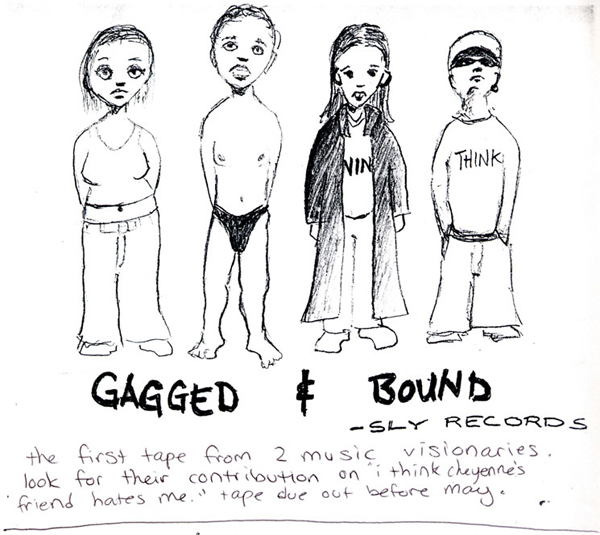 NIN
THINK
GAGGED & BOUND
-SLY RECORDS
the first tape from 2 music visionaries.
look for their contribution on "i think cheyenne's
friend hates me." tape due out before may.